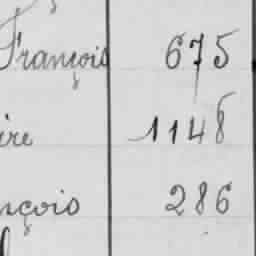 François 675
ire 1148
nçois 286